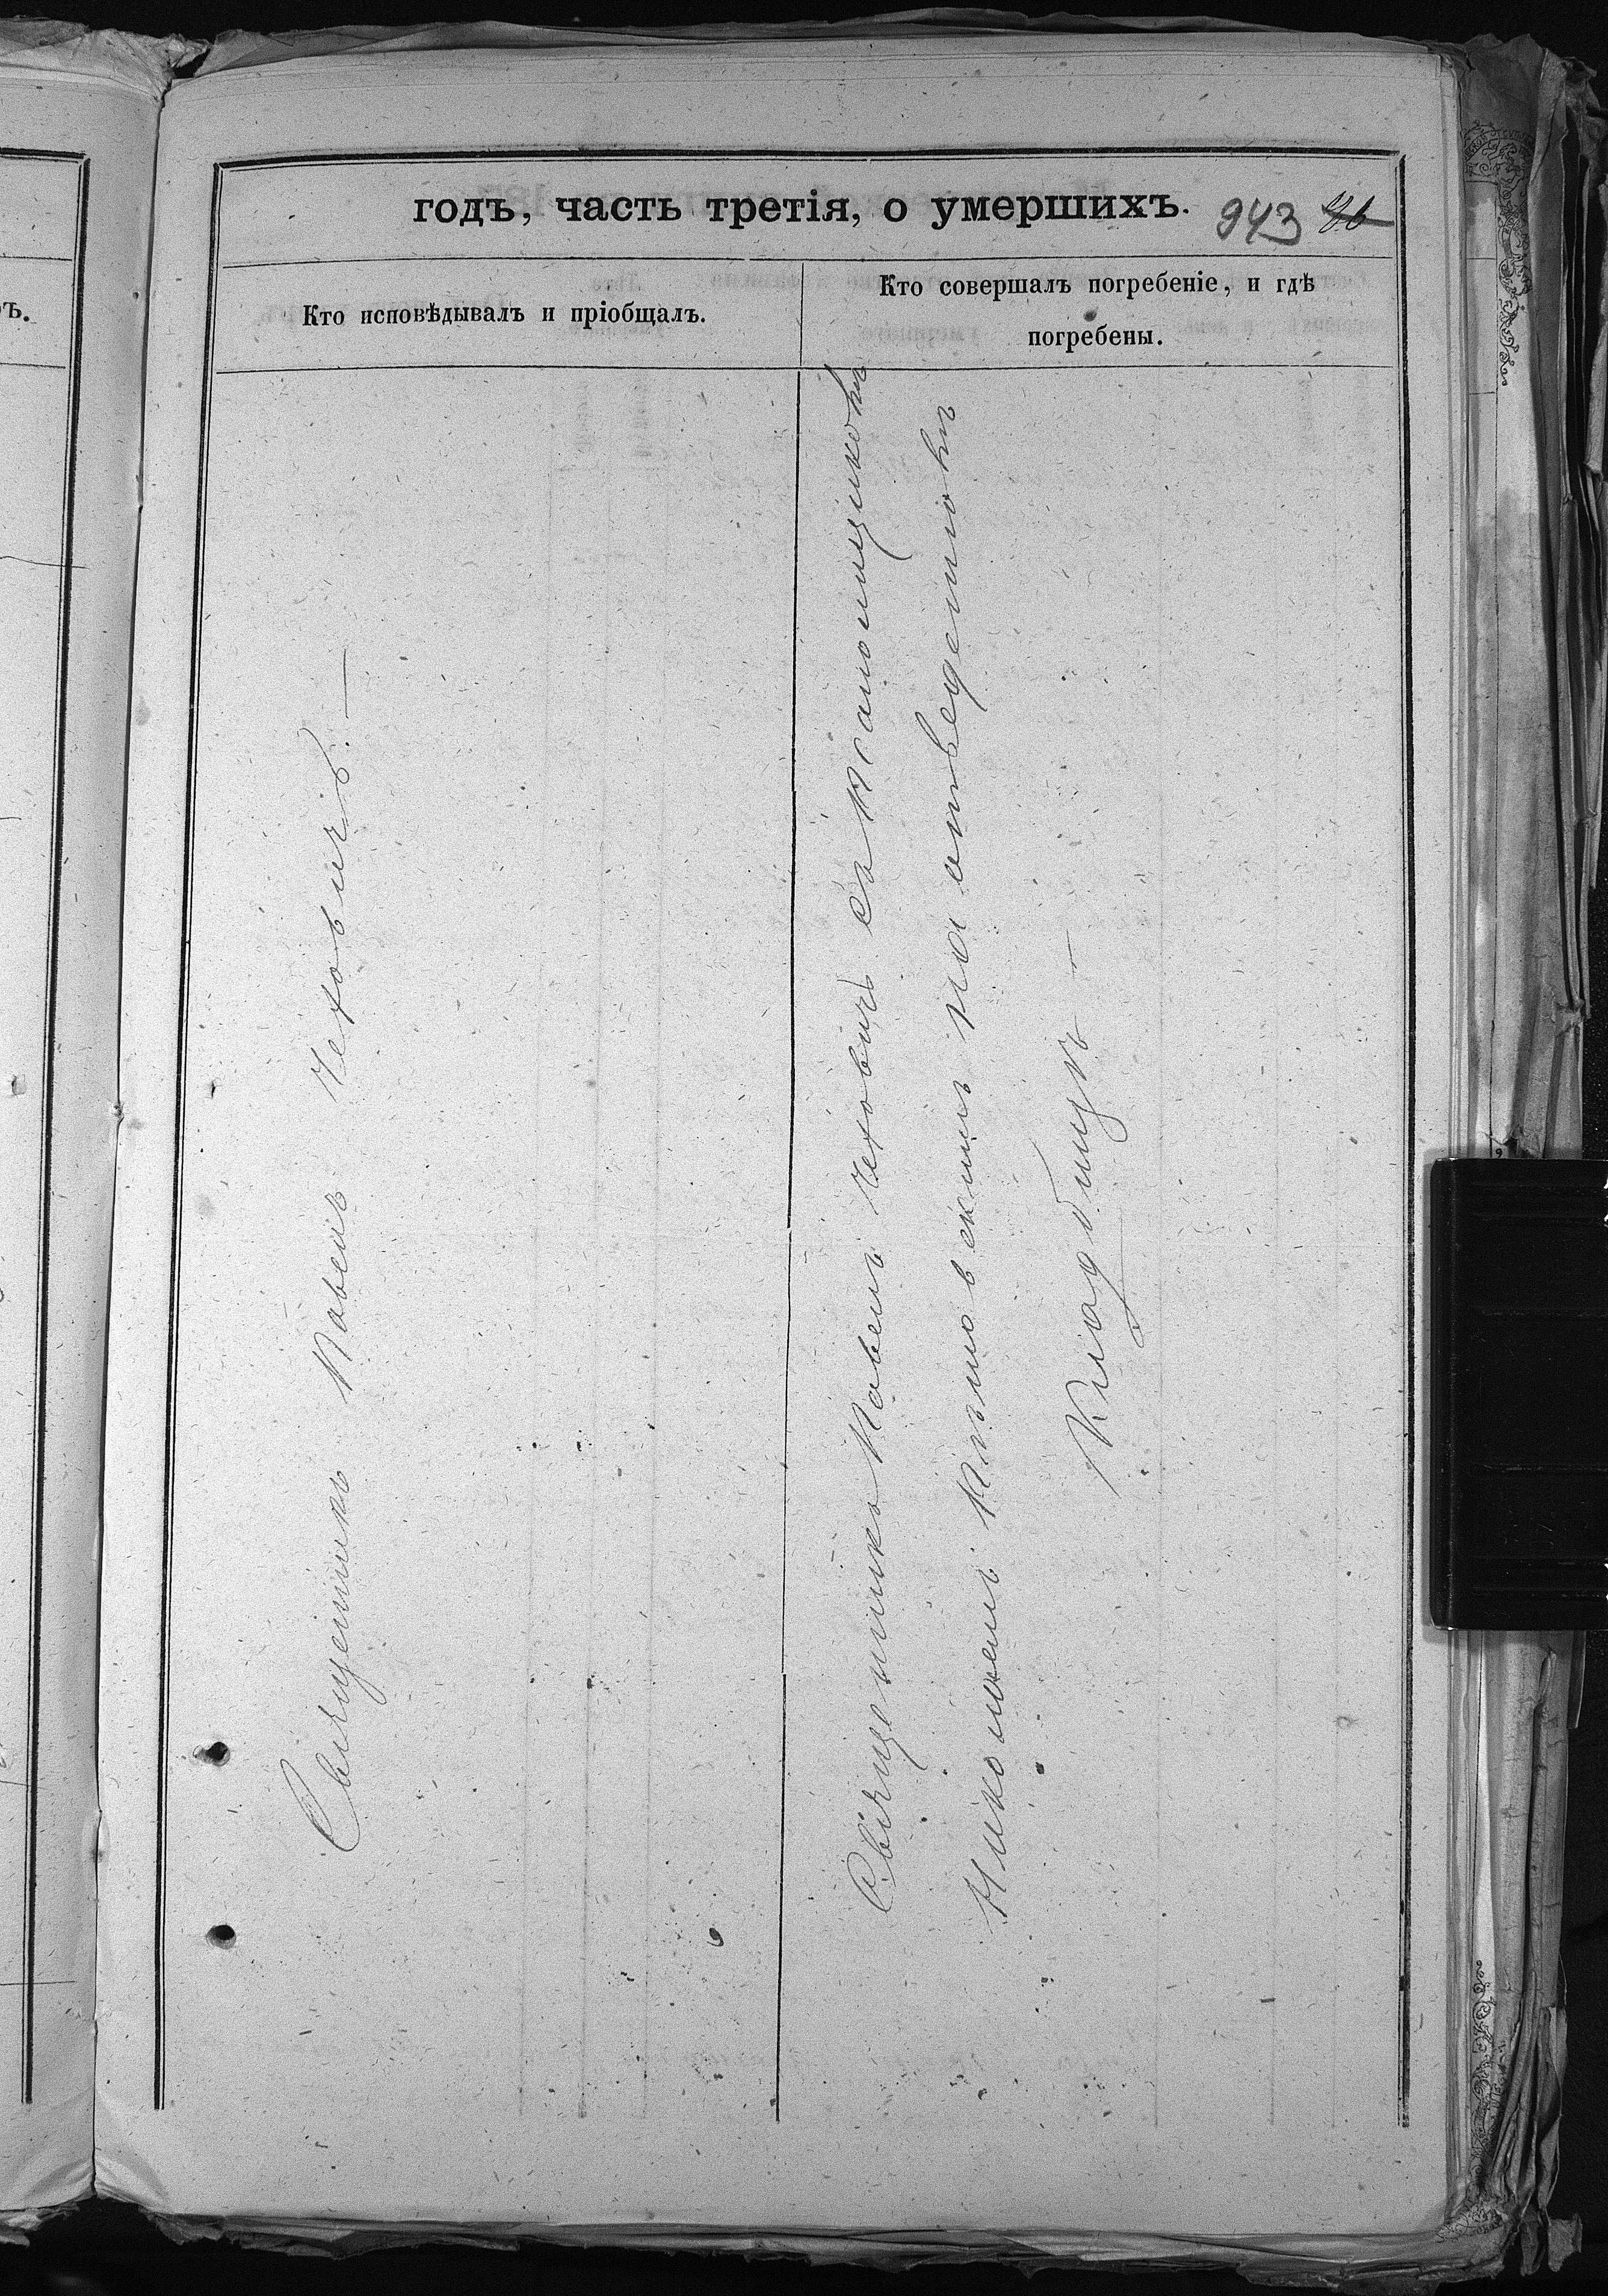 годъ, часть третія, о умершихъ.
943
Кто исповѣдывалъ и пріобщалъ.
Кто совершалъ погребеніе, и гдѣ
погребены.
Священникъ Павелъ Чеховичъ. —
Священникъ Павелъ Чеховичъ съ псаломщикомъ
Николаемъ на отведенномъ
Кладбищѣ —
ъ.